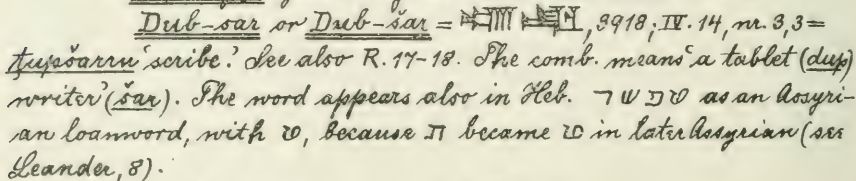 Dub-sar or Dub-šar = 𒁾 𒊬, 3918; IV. 14, nr. 3,3 =
ṭupšarru 'scribe.' See also R. 17-18. The comb. means 'a tablet (dup)
writer' (šar). The word appears also in Heb. טפשר as an Assyri-
an loanword, with ט, because ת became ט in later Assyrian (see
Leander, 8).